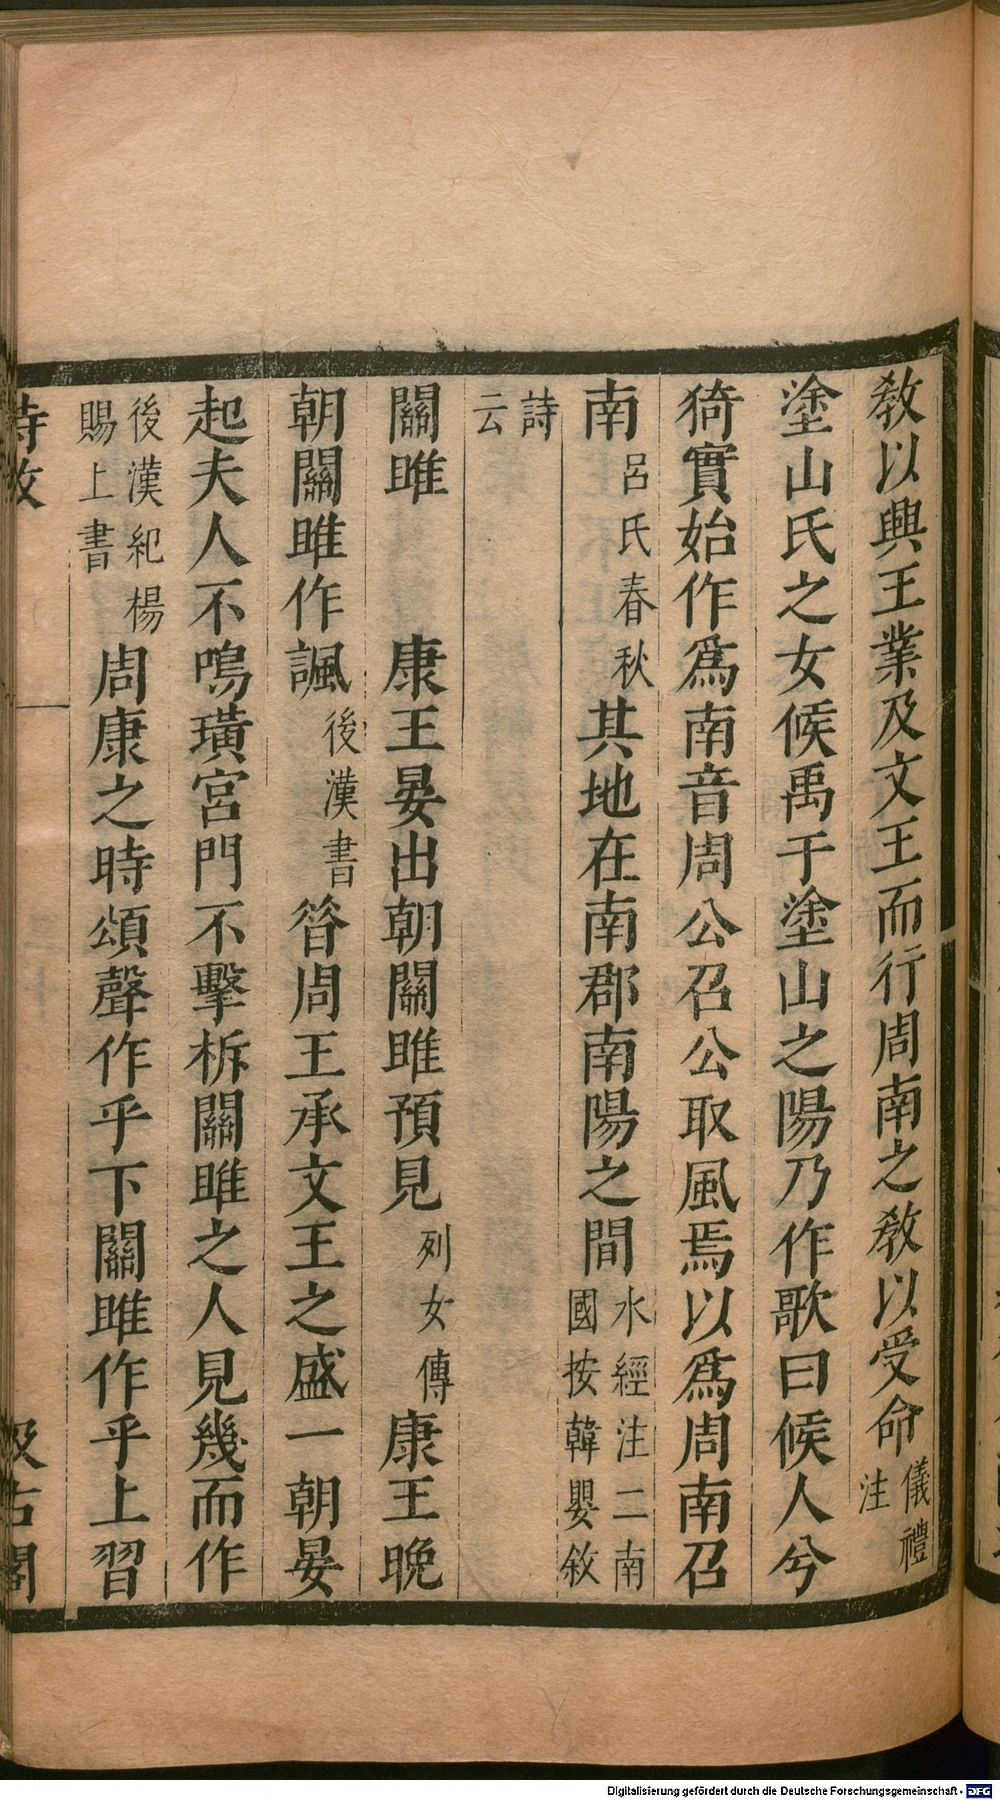 敎以興王業及文王而行周南之敎以受命儀禮注
塗山氏之女候禹于塗山之陽乃作歌曰候人兮
猗實始作爲南音周公召公取風焉以爲周南召
南呂氏春秋其地在南郡南陽之間水經注二南國按韓嬰敘
詩云
關雎　康王晏出朝關雎預見列女傳康王晚
朝關雎作諷後漢書昝周王承文王之盛一朝晏
起夫人不鳴璜宮門不擊柝關雎之人見幾而作
後漢紀楊賜上書周康之時頌聲作乎下關雎作乎上習
詩攷　汲古閣
Digitalisierung gefördert durch die Deutsche Forschungsgemeinschaft - DFG